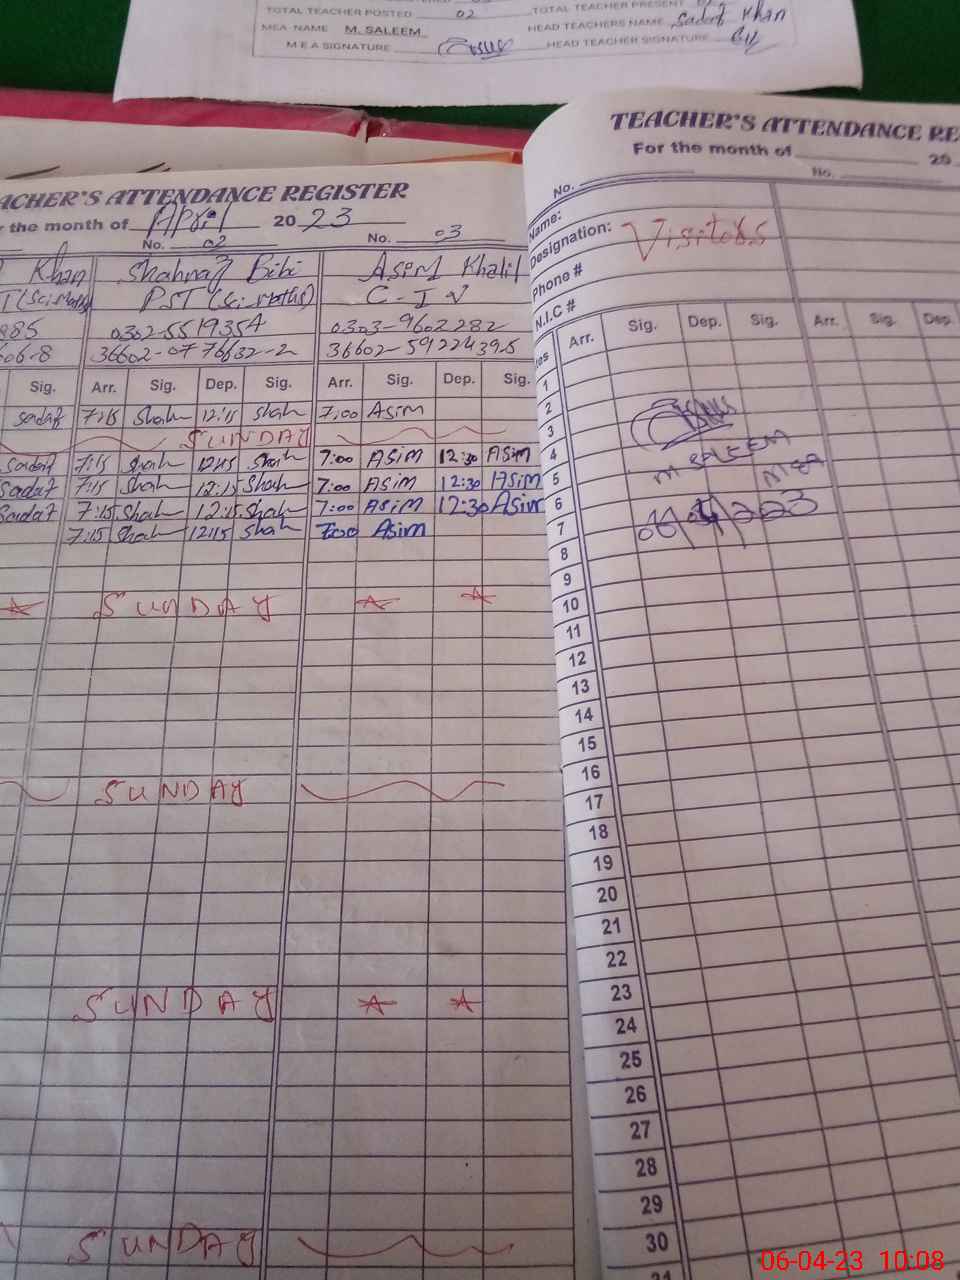 TOTAL TEACHER POSTED 02 TOTAL TEACHER PRESENT
MEA NAME M. SALEEM HEAD TEACHERS NAME Sadaf Khan
M E A SIGNATURE HEAD TEACHER SIGNATURE
ACHER'S ATTENDANCE REGISTER
r the month of April 20 23
No. 02 No. 03
Khan Shahnaz Bibi Asim Khalil
T(Sci.Maths) PST (Sci. Maths) C-IV
885 0302-5519354 0303-9602282
606-8 36602-0776632-2 36602-5922439.5
Sig. Arr. Sig. Dep. Sig. Arr. Sig. Dep. Sig.
Sadaf 7:15 Shah 12:15 Shah 7:00 Asim
SUNDAY
Sadaf 7:15 Shah 12:15 Shah 7:00 Asim 12:30 Asim
Sadaf 7:15 Shah 12:15 Shah 7:00 Asim 12:30 Asim
Sadaf 7:15 Shah 12:15 Shah 7:00 Asim 12:30 Asim
7:15 Shah 12:15 Shah 7:00 Asim
SUNDAY
SUNDAY
SUNDAY
SUNDAY
TEACHER'S ATTENDANCE RE
For the month of 20
No. No.
Name:
Designation: Visitors
Phone #
N.I.C #
Arr. Sig. Dep. Sig. Arr. Sig. Dep.
1
2
3
4 M SALEEM
5 MEA
6
7 06/04/2023
8
9
10
11
12
13
14
15
16
17
18
19
20
21
22
23
24
25
26
27
28
29
30
31
06-04-23 10:08